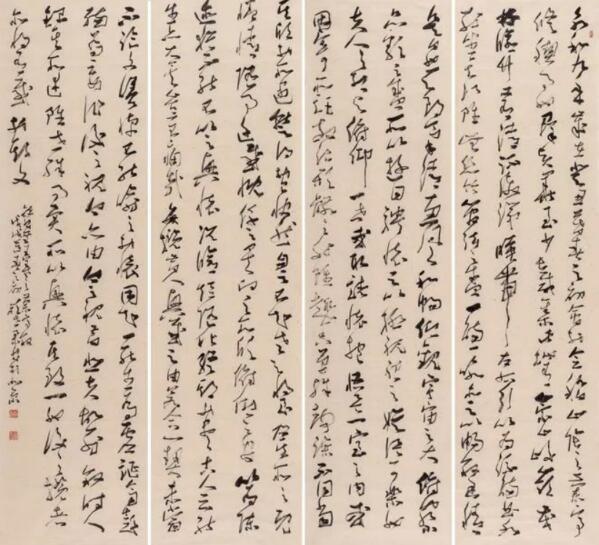 永和九年歲在癸丑暮春之初會於會稽山陰之蘭亭
修禊事也群賢畢至少長咸集此地有崇山峻嶺茂
林修竹又有清流激湍映帶左右引以為流觴曲水
列坐其次雖無絲竹管弦之盛一觴一詠亦足以暢敘幽情
是日也天朗氣清惠風和暢仰觀宇宙之大俯察
品類之盛所以遊目騁懷足以極視聽之娛信可樂也
夫人之相與俯仰一世或取諸懷抱悟言一室之內或
因寄所託放浪形骸之外雖趣舍萬殊靜躁不同當
其欣於所遇暫得於己快然自足不知老之將至及其所之既
倦情隨事遷感慨係之矣向之所欣俯仰之間以為陳
跡猶不能不以之興懷況修短隨化終期於盡古人云死
生亦大矣豈不痛哉每覽昔人興感之由若合一契未嘗
不臨文嗟悼不能喻之於懷固知一死生為虛誕齊彭
殤為妄作後之視今亦由今之視昔悲夫故列敘時人
錄其所述雖世殊事異所以興懷其致一也後之覽者
亦將有感於斯文